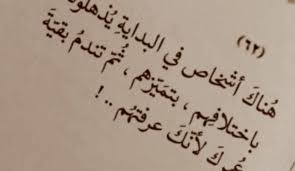 (٦٢)
هُناكَ أشخاص في البدايةِ يُذهلونَ
باختلافِهِم ، بتَميّزِهم ، ثُمّ تندمُ بقيّةَ
عُمركَ لأنّكَ عرفتَهُم ..!